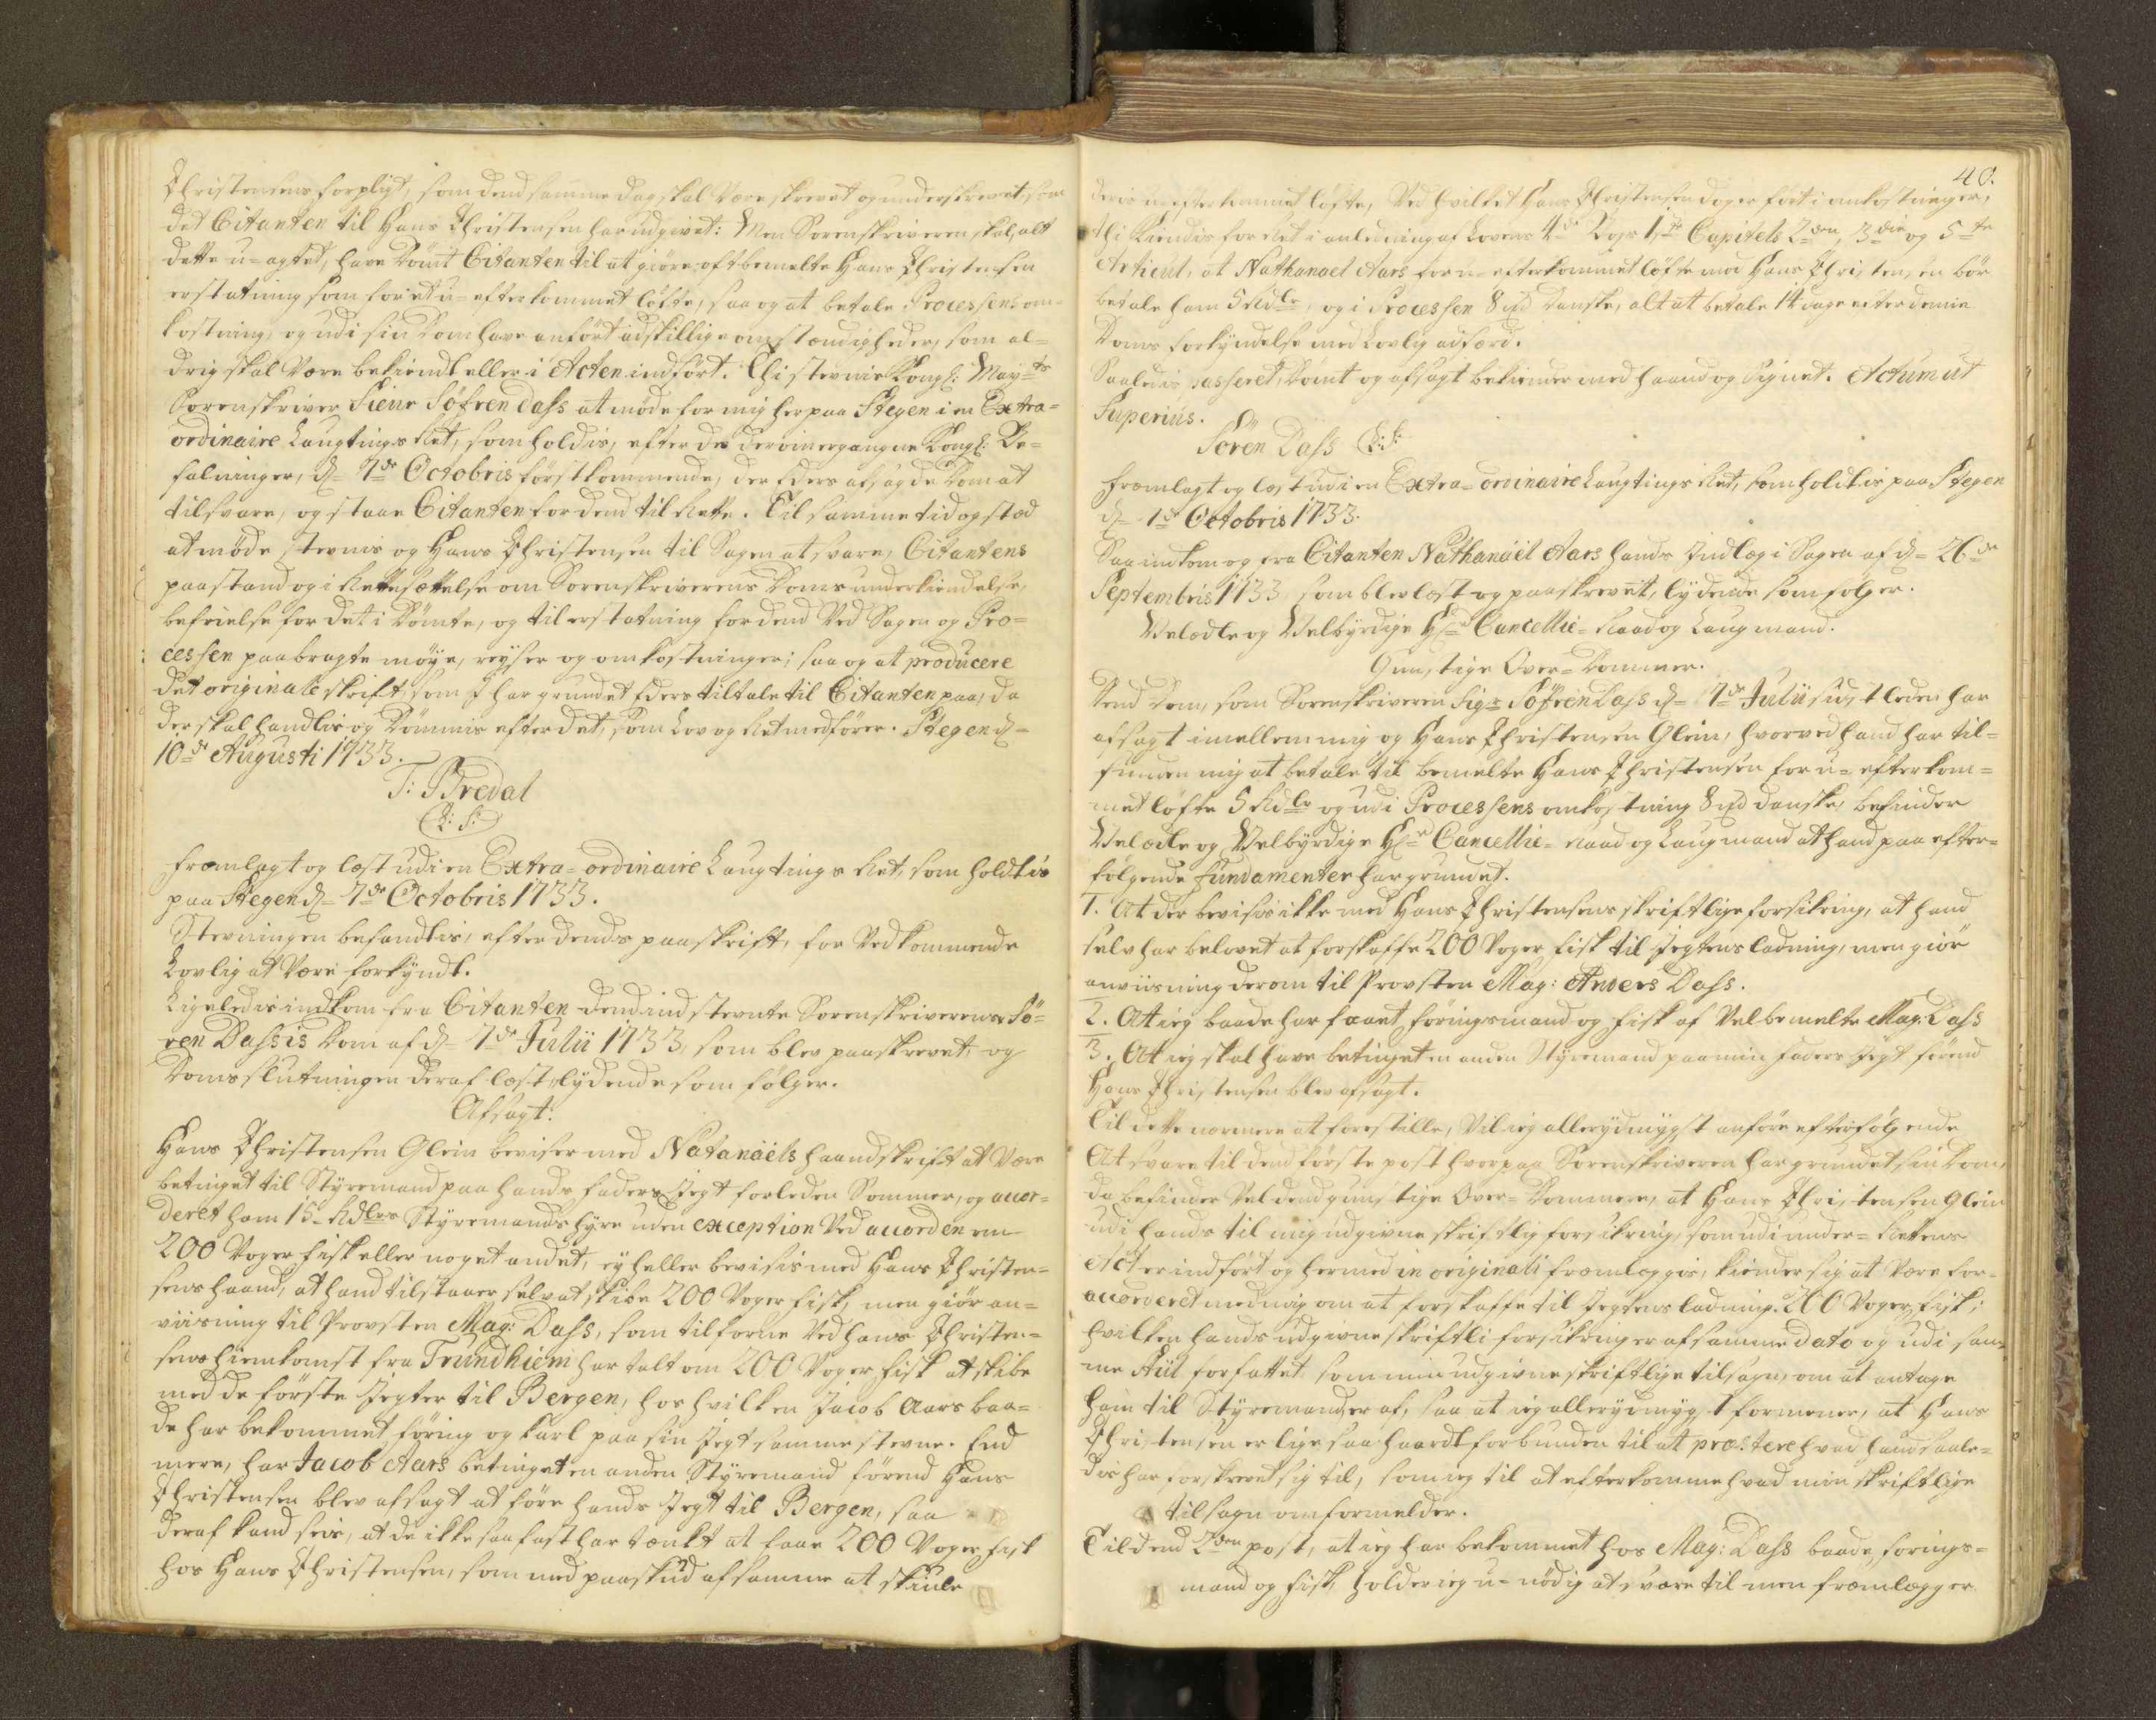 Christensens forpligt, som dend samme dag skal være skrevet og underskrevet, som
det Citanten til Hans Christensen har udgivet: Men Sorenskriveren skal alt
dette u-agtet, have dömt Citanten til at giøre oftbemelte Hans Christensen
erstatning som for et u-efterkommet löfte, saa og at betale Processens om-
kostning, og udi sin Dom have anfört adskillige omstændigheder, som al-
drig skal være bekiendt eller i Acten indfört. Thi stevnis Kongl: May:ts
Sorenskriver Sieur Söfren Dass at möde for mig her paa Stegen i en Extra-
ordinaire Laugtings Ret, som holdis, efter de derom ergangne Kongl: Be-
falninger, d= 7de Octobris förstkommende, der Eders afsagde Dom at
tilsvare, og staae Citanten for dend til Rette. Til samme tid og stæd
at möde stevnis og Hans Christensen til Sagen at svare, Citantens
paastand og i Rettesættelse om Sorenskriverens Doms underkiendelse,
befrielse for det i Dömte, og til erstatning for dend ved Sagen og Pro-
cessen paabragte möye, reyser og omkostninger; saa og at producere
det originale skrift, som I har grundet Eders tiltale til Citanten paa, da
der skal handlis og Dömmis efter det, som Lov og Ret medförer. Stegen d=
10de Augusti 1733.
T: Bredal
(L: S:)
Fremlagt og læst udi en Extra-ordinaire Laugtings Ret, som holdtis
paa Stegen d= 7de Octobris 1733.
Stevningen befandtis, efter dends paaskrift, for vedkommende
Lovlig at være forkyndt.
Ligeledis indkom fra Citanten dend indstevnte Sorenskriverens Sö-
ren Dassis Dom af d= 7de Julii 1733, som blev paaskrevet, og
Doms slutningen deraf læst, lydende som fölger.
Afsagt:
Hans Christensen Glein beviser med Natanaëls haandskrift at være
betinget til Styremand paa hands faders Jegt forleden Sommer, og accor-
deret ham 15 Rdlrs Styremands hyre uden exception ved accorden om
200 Voger fisk eller noget andet, ey heller bevisis med Hans Christen-
sens haand, at hand tilstaaer selv at skibe 200 Voger fisk, men giör an-
viisning til Provsten Mag: Dass, som tilforne ved Hans Christen-
sens hiemkomst fra Trundhiem har talt om 200 Voger fisk at skibe
med de förste Jegter til Bergen, hos hvilken Jacob Aars baa-
de har bekommet föring og karl paa sin Jegt samme stevne. End
mere, har Jacob Aars betinget en anden Styremand förend Hans
Christensen blev afsagt at före hands Jegt til Bergen, saa
deraf kand seis, at de ikke saa fast har tænkt at faae 200 Voger fisk
hos Hans Christensen, som med paaskud af samme at skiule
40.
deris u-efterkommet löfte, ved hvilket Hans Christensen doger fört i omkostninger,
thi kiendis for Ret i anledning af Lovens 4de Bogs 1ste Capitels 2den, 3die og 5te
Articul, at Nathanael Aars for u-efterkommet löfte mod Hans Christensen bör
betale ham 5 Rdlr, og i Processen 8 rd danske, alt at betale 14 dage efter denne
Doms forkyndelse med Lovlig adfærd.
Saaledis passeret, Dömt og afsagt bekiender med haand og Signet. Actum ut
Superius.
Sören Dass (L:S:)
Fremlagt og læst udi en Extra-ordinaire Laugtings Ret, som holdtis paa Stegen
d= 7de Octobris 1733.
Saa indkom og fra Citanten Nathanaël Aars hands Indlæg i Sagen af d= 26de
Septembris 1733, som blev læst og paaskrevet, lydende som fölger.
Velædle og Velbyrdige Hr Cancellie-Raad og Laugmand.
Gunstige Over-Dommer.
Dend Dom, som Sorenskriveren Sigr Söfren Dass d= 7de Julii sidstleden har
afsagt imellem mig og Hans Christensen Glein, hvorved hand har til-
funden mig at betale til bemelte Hans Christensen for u-efterkom-
met löfte 5 Rdlr og udi Processens omkostning 8 rd danske, befinder
Velædle og Velbyrdige Hr Cancellie-Raad og Laugmand at hand paa efter-
fölgende Fundamenter har grundet.
1. At der bevisis ikke med Hans Christensens skriftlige forsikring, at hand
selv har belovet at forskaffe 200 Voger fisk til Jegtens ladning, men giör
anviisning derom til Provsten Mag: Anders Dass.
2. At ieg baade har faaet föringsmand og fisk af Velbemelte Mag: Dass
3. At ieg skal have betinget en anden Styremand paa min faders Jegt förend
Hans Christensen blev afsagt.
Til dette nærmere at forestille, vil ieg allerydmygst anföre efterfölgende
At svare til dend förste post hvorpaa Sorenskriveren har grundet sin Dom,
da befinder vel dend gunstige Over-Dommere, at Hans Christensen Glein
udi hands til mig udgivne skriftlig forsikring, som udi under-Rettens
Act er indfört og hermed in originali fremlæggis, kiender sig at være for-
accorderet med mig om at forskaffe til Jegtens ladning 200 Voger fisk;
hvilken hands udgivne skriftli forsikring er af samme dato og udi sam-
me Stiil forfattet, som min udgivne skriftlige tilsagn, om at antage
ham til Styremand er af, saa at ieg allerydmygst formener, at Hans
Christensen er lige saa haardt forbunden til at præstere hvad hand saale-
dis har forskrevet sig til, som ieg til at efterkomme hvad min skriftlige
tilsagn om formelder.
Til dend 2den post, at ieg har bekommet hos Mag: Dass baade förings-
mand og fisk, holder ieg u-nödig at svare til men fremlægger